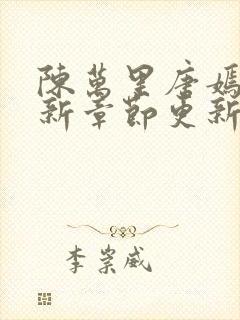 陳萬里唐嫣
新章節更新
李崇威